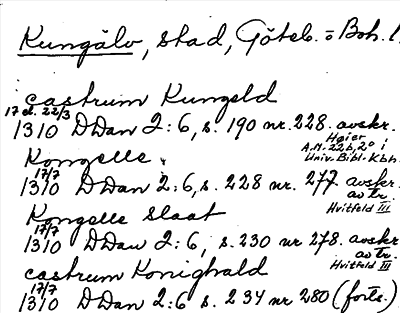 Kungälv, stad, Göteb. o Boh. l.
castrum Kungeld
17 el. 22/3
1310 DDan 2:6, s. 190 nr. 228. avskr.
Høier
A.M. 22b, 2° i
Univ. Bibl. Kbh.
Kongelle.
17/7
1310 DDan 2:6, s. 228 nr. 277 avskr.
av tr.
Hvitfeld III
Kongelle slaat
17/7
1310 DDan 2:6, s. 230 nr 278. avskr
av tr.
Hvitfeld III
castrum Konighald
17/7
1310 DDan 2:6 s. 234 nr 280 (forts.)